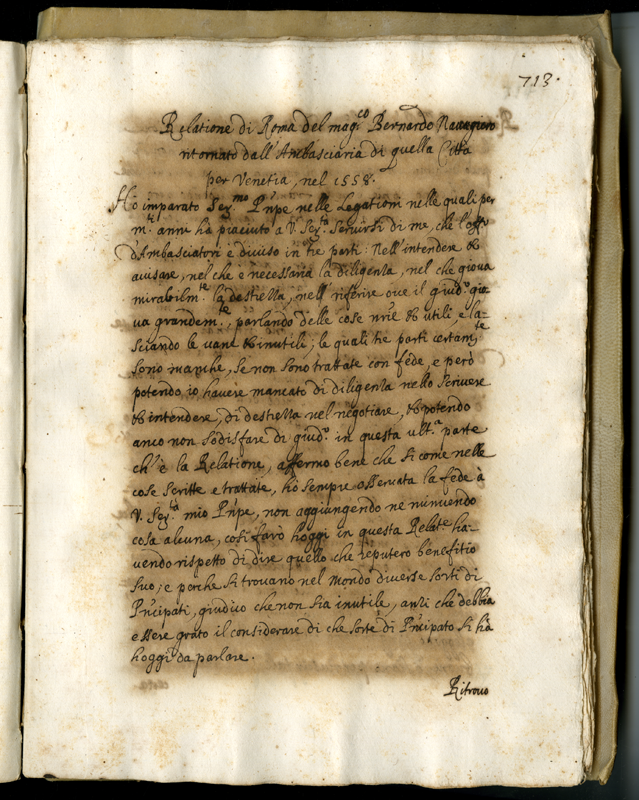 713.
Relatione di Roma del mag.co Bernardo Navagiero
ritornato dall'Ambasciaria di quella Citta
per Venetia, nel 1558.
Ho imparato Ser.mo Pñpe nelle Legationi nelle quali per
m.ti anni hà piaciuto a V. Ser.tà servirsi di me, che l'offo
d'Ambasciatori è diviso in tre parti: Nell'intendere &
avisare, nel che è necessaria la diligenza, nel che giova
mirabilm.te la destrezza, nell'riferire ove il giud.o gio-
va grandem.te, parlando delle cose nrie & utili, e la-
sciando le vane & inutili; le quali tre parti certam.te
sono manche, se non sono trattate con fede, e però
potendo io havere mancato di diligenza nello scrivere
& intendere, di destrezza nel negotiare, & potendo
anco non sodisfare di giud.o in questa ult.a parte
ch'è la Relatione, affermo bene che si come nelle
cose scritte e trattate, hò sempre osservata la fede à
V. Ser.tà mio Pñpe, non aggiungendo ne minuendo
cosa alcuna, così farò hoggi in questa Relat.e ha-
vendo rispetto di dire quello che reputerò benefitio
suo; e perche si trovano nel mondo diverse sorti di
Pñcipati, giudico che non sia inutile, anzi che debbia
essere grato il considerare di che sorte di Pñcipato si hà
hoggi da parlare.
Ritrovo